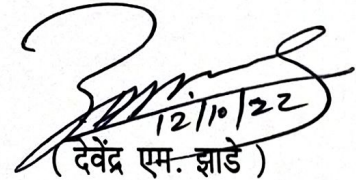 12/10/22
( देवेंद्र एम. झाडे )